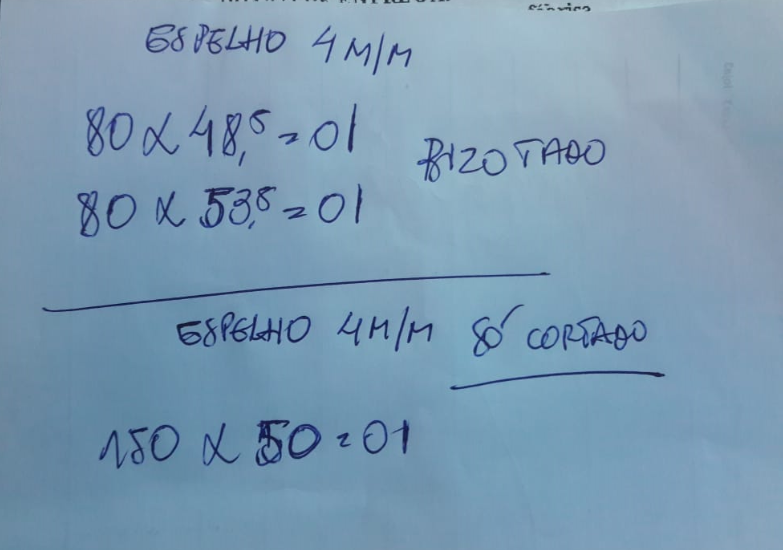 ESPELHO 4 M/M
80 X 48,5 = 01
BIZOTADO
80 X 53,5 = 01
ESPELHO 4 M/M SÓ CORTADO
150 X 50 = 01